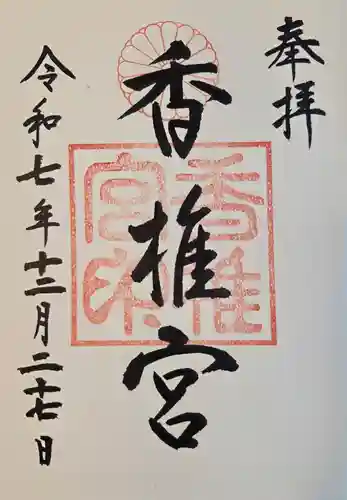 奉拝
香椎宮
香椎宮印
令和七年十二月二十七日